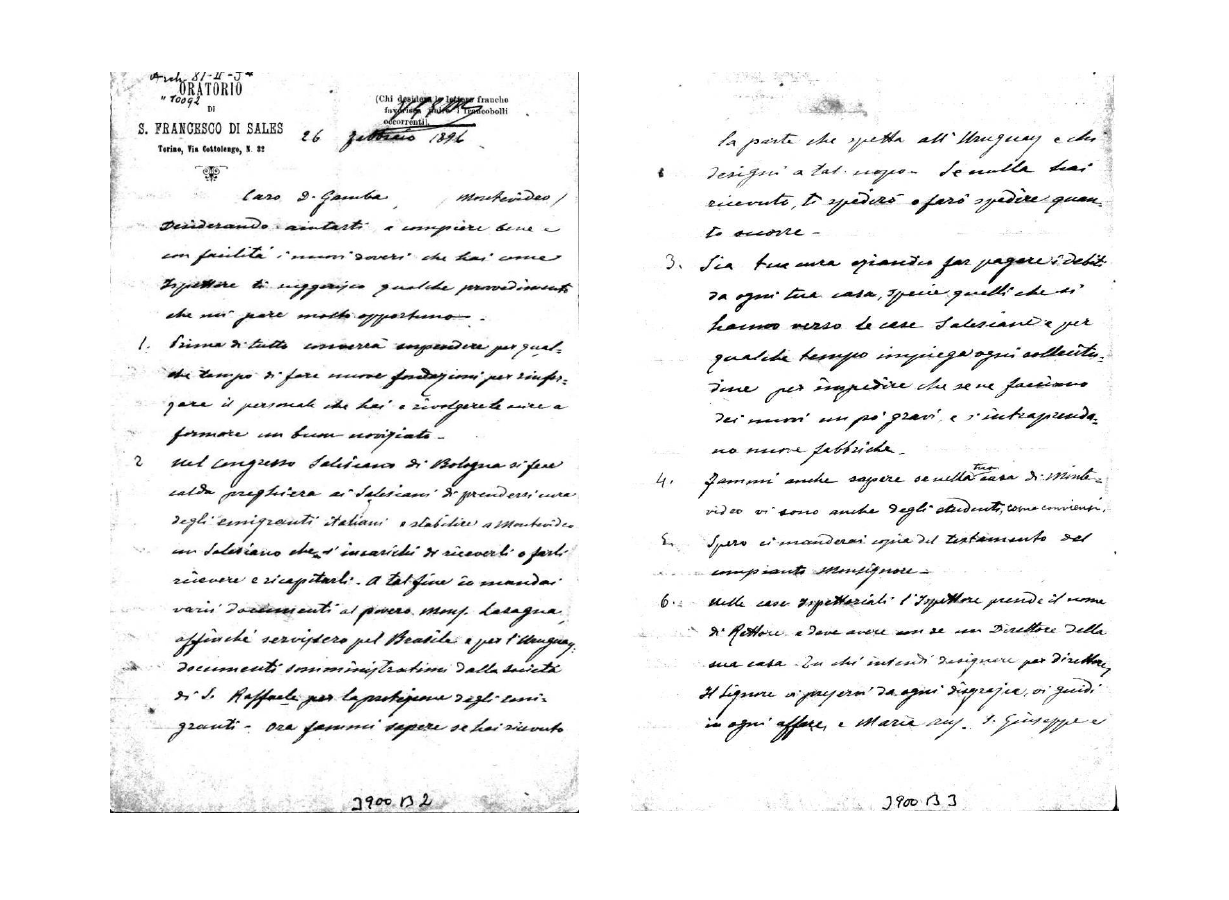 Arch. 81-II-3ª
ORATORIO
" 10092
DI
S. FRANCESCO DI SALES
Torino, Via Cottolengo, N. 32
(Chi desidera le lettere franche
favorisca unire i francobolli
occorrenti).
26 Febbraio 1896
Caro D. Gamba, Montevideo/
Desiderando aiutarti a compiere bene e
con facilità i nuovi doveri che hai come
Ispettore ti suggerisco qualche provvedimento
che mi pare molto opportuno -.
1. Prima di tutto converrà sospendere per qual-
che tempo di fare nuove fondazioni per rinfor-
zare il personale che hai e rivolgere le mire a
formare un buon noviziato -
2 Nel Congresso Salesiano di Bologna si fece
calda preghiera ai Salesiani di prendersi cura
degli emigranti italiani e stabilire a Montevideo
un Salesiano che s'incarichi di riceverli o farli
ricevere e ricapitarli - A tal fine io mandai
varii documenti al povero Mons. Lasagna,
affinchè servissero pel Brasile e per l'Uruguay,
documenti somministratimi dalla società
di S. Raffaele per la protezione degli emi-
granti - Ora fammi sapere se hai ricevuto
J 900 B 2
la parte che spetta all'Uruguay e chi
designi a tal uopo - Se nulla hai
ricevuto, ti spedirò o farò spedire quan-
to occorre -
3. Sia tua cura eziandio far pagare i debiti
da ogni tua casa, specie quelli che si
hanno verso le case Salesiane e per
qualche tempo impiega ogni sollecitu-
dine per impedire che se ne facciano
dei nuovi un pò gravi, e s'intraprenda-
no nuove fabbriche -
4. Fammi anche sapere se nella tua casa di Monte-
video vi sono anche degli studenti, come conviensi.
5. Spero ci manderai copia del testamento del
compianto Monsignore -
6. Nelle case Ispettoriali l'Ispettore prende il nome
di Rettore e deve avere con se un Direttore della
sua casa. Tu chi intendi designare per direttore,
Il Signore vi preservi da ogni disgrazia, vi guidi
in ogni affare, e Maria Aus. S. Giuseppe e
J 900 B 3